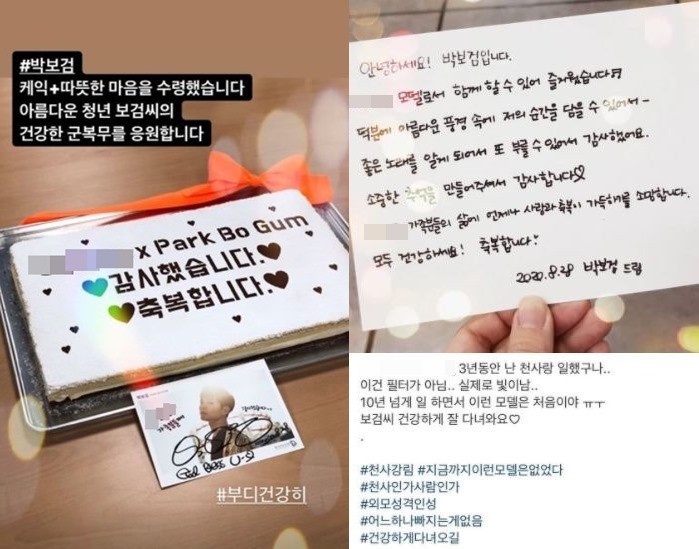 #박보검
케익+따뜻한 마음을 수령했습니다
아름다운 청년 보검씨의
건강한 군복무를 응원합니다
x Park Bo Gum
감사했습니다.
축복합니다.
박보검
God Bless U
#부디건강히
안녕하세요! 박보검입니다.
모델로서 함께 할 수 있어 즐거웠습니다
덕분에 아름다운 풍경 속에 저의 순간을 담을 수 있어서~
좋은 노래를 알게 되어서 또 부를 수 있어서 감사했어요.
소중한 추억을 만들어주셔서 감사합니다♡
가족분들의 삶에 언제나 사랑과 축복이 가득하기를 소망합니다.
모두 건강하세요! 축복합니다
2020.8.28 박보검 드림
3년동안 난 천사랑 일했구나..
이건 필터가 아님.. 실제로 빛이남..
10년 넘게 일 하면서 이런 모델은 처음이야 ㅠㅜ
보검씨 건강하게 잘 다녀와요♡
.
#천사강림 #지금까지이런모델은없었다
#천사인가사람인가
#외모성격인성
#어느하나빠지는게없음
#건강하게다녀오길